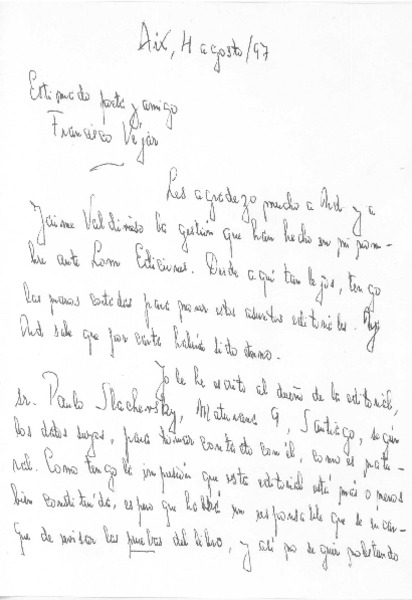 Aix, 4 agosto/97
Estimado poeta y amigo
Francisco Véjar
Les agradezco mucho a Ud. y a
Jaime Valdivieso la gestión que han hecho en mi nom-
bre ante Lom Ediciones. Desde aquí tan lejos, tengo
las manos cortadas para mover estos asuntos editoriales.
Ud. sabe que por carta habría sido
Yo le he escrito al dueño de la editorial,
sr. Paulo Slachevsky, Maturana 9, Santiago, según
los datos suyos, para tomar contacto con él, como es natu-
ral. Como tengo la impresión que esta editorial está más o menos
bien constituida, espero que habrá un responsable que se encar-
gue de revisar las pruebas del libro, y así no seguir molestando